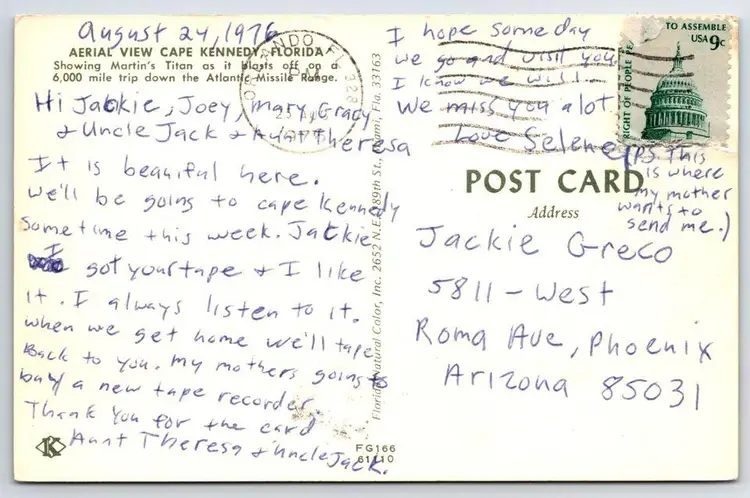 August 24, 1976
AERIAL VIEW CAPE KENNEDY, FLORIDA
Showing Martin's Titan as it blasts off on a
6,000 mile trip down the Atlantic Missile Range.
Hi Jackie, Joey, Mary, Gracy
& Uncle Jack & Aunt Theresa
It is beauiful here.
We'll be going to cape Kennedy
sometime this week. Jackie
I got your tape & I like
it. I always listen to it.
when we get home we'll tape
Back to you. My mothers going to
buy a new tape recorder.
Thank You for the card
Aunt Theresa & Uncle Jack.
K
FG166
61110
Florida Natural Color, Inc. 2652 N.E. 189th St., Miami, Fla. 33163
I hope someday
we go and visit you
I know we will...
We miss you alot
Love Selene
(PS. This
is where
my mother
wants to
send me.)
ORLANDO, FL 328
TO ASSEMBLE
USA 9c
RIGHT OF PEOPLE
POST CARD
Address
Jackie Greco
5811 - West
Roma Ave, Phoenix
Arizona 85031